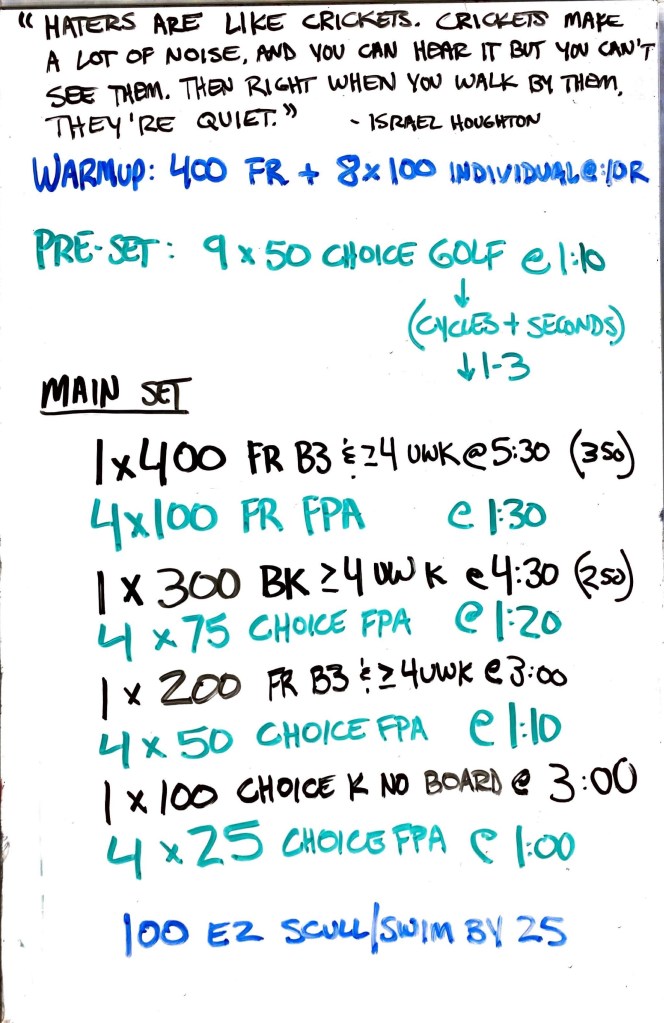 "HATERS ARE LIKE CRICKETS. CRICKETS MAKE
A LOT OF NOISE, AND YOU CAN HEAR IT BUT YOU CAN'T
SEE THEM. THEN RIGHT WHEN YOU WALK BY THEM,
THEY'RE QUIET." - ISRAEL HOUGHTON
WARMUP: 400 FR + 8x100 INDIVIDUAL@:10R
PRE-SET: 9 x 50 CHOICE GOLF @ 1:10
↓
(CYCLES + SECONDS)
↓1-3
MAIN SET
1x400 FR B3 & ≥4 UWK @ 5:30 (350)
4x100 FR FPA @ 1:30
1 x 300 BK ≥4 UW K @ 4:30 (250)
4 x 75 CHOICE FPA @ 1:20
1 x 200 FR B3 & ≥4UWK @ 3:00
4 x 50 CHOICE FPA @ 1:10
1 x 100 CHOICE K NO BOARD @ 3:00
4 x 25 CHOICE FPA @ 1:00
100 EZ SCULL/SWIM BY 25